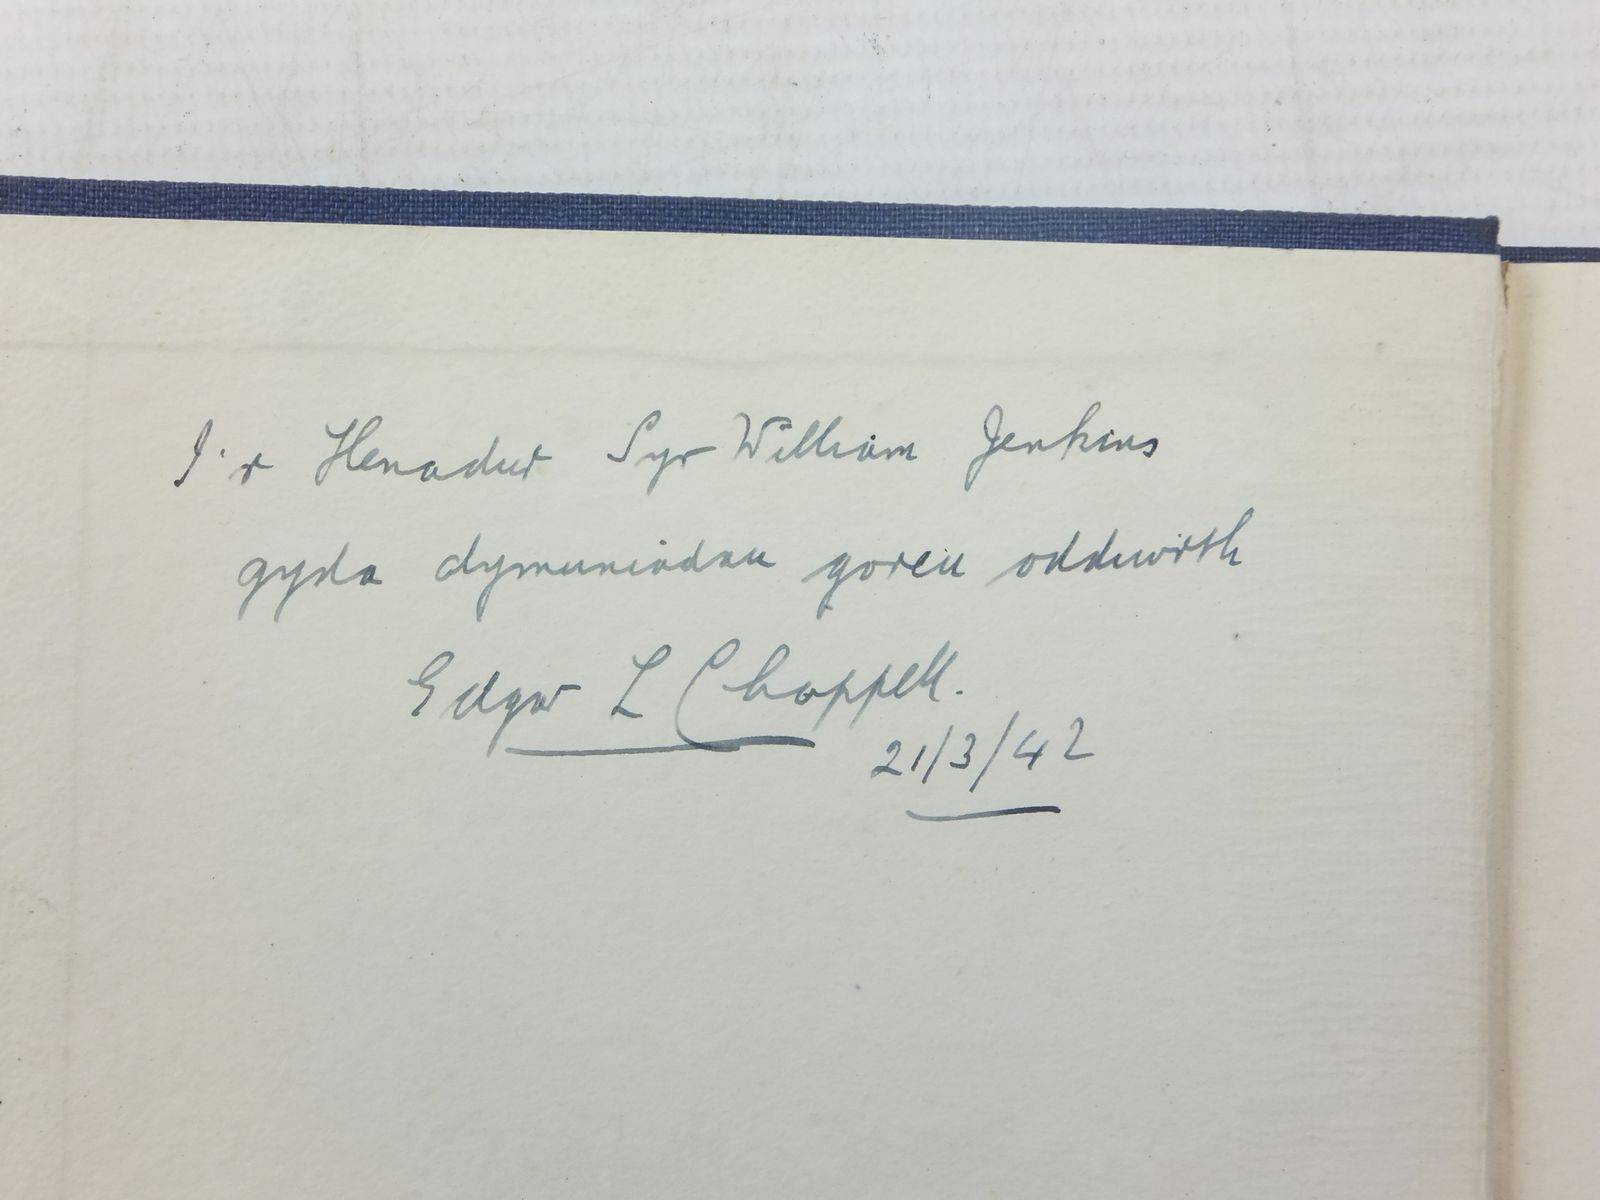 I'r Henadur Syr William Jenkins
gyda dymuniadau goreu oddiwrth
Edgar L Chappell.
21/3/42